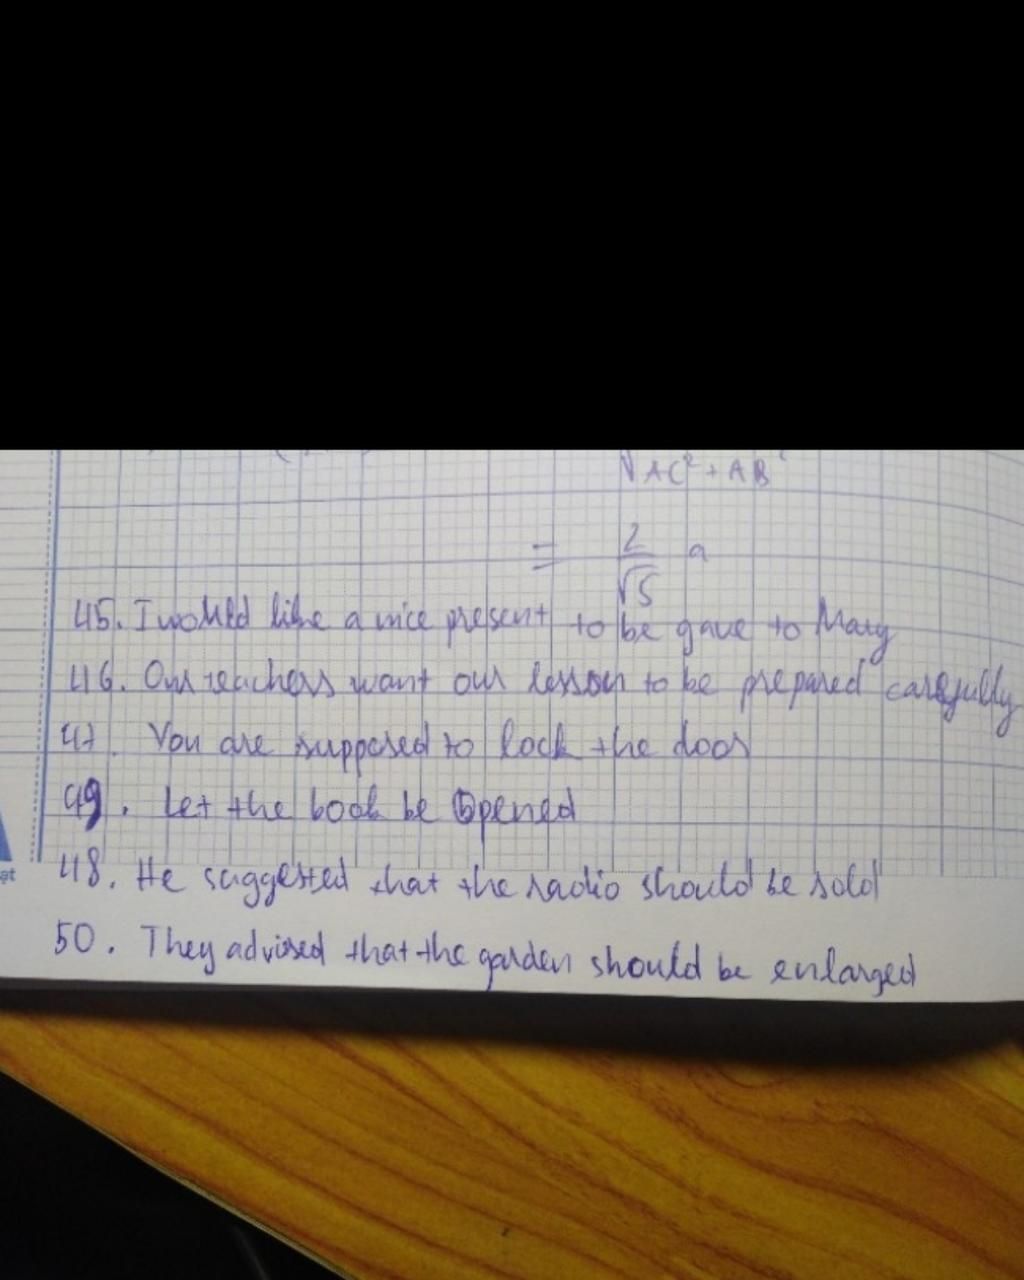 √AC² + AB²
= 2/√5 a
45. I would like a nice present to be gave to Mary
46. Our teachers want our lesson to be prepared carefully
47. You are supposed to lock the door
49. Let the book be opened
48. He suggested that the radio should be sold
50. They advised that the garden should be enlarged